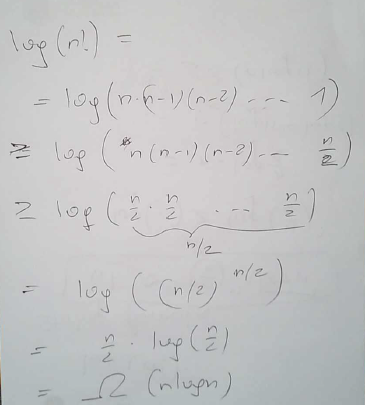 log(n!) =
= log(n·(n-1)(n-2)---- 1)
≥ log(n(n-1)(n-2)--- n/2)
≥ log(n/2 · n/2 · --- n/2)
n/2
= log((n/2)^n/2)
= n/2 · log(n/2)
= Ω(nlogn)